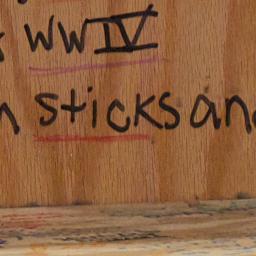 WWIV
sticks an